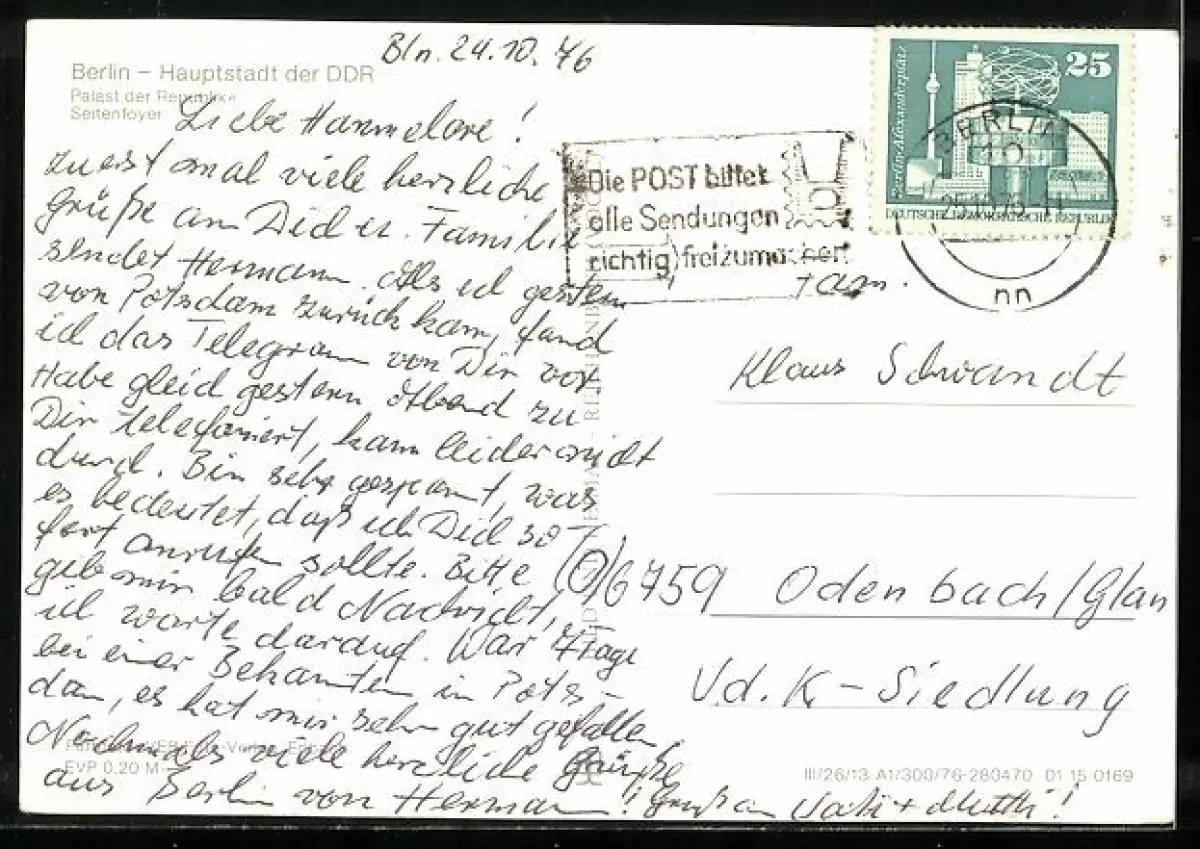 Bln. 24.10.76
Berlin – Hauptstadt der DDR
Palast der Republik
Seitenfoyer
Liebe Hannelore!
zuerst mal viele herzliche
Grüße an Dich u. Familie
sendet Hermann. Als ich gestern
von Potsdam zurück kam, fand
ich das Telegram von Dir vor.
Habe gleich gestern Abend zu
Dir telefoniert, kam leider nicht
durch. Bin sehr gespannt, was
es bedeutet, daß ich Dich so-
fort anrufen sollte. Bitte
gib mir bald Nachricht,
ich warte darauf. War 7 Tage
bei einer Bekannten in Pots-
dam, es hat mir sehr gut gefallen.
Nochmals viele herzliche Grüße
aus Berlin von Hermann! Gruß an Vati + Mutti!
EVP 0.20 M
Die POST bittet
alle Sendungen
richtig freizumachen
25
Berlin-Alexanderplatz
DEUTSCHE DEMOKRATISCHE REPUBLIK
BERLIN
10
nn
Fam.
Klaus Schwandt
6759 Odenbach/Glan
V.d.K-Siedlung
III/26/13 A1/300/76-280470 01 15 0169